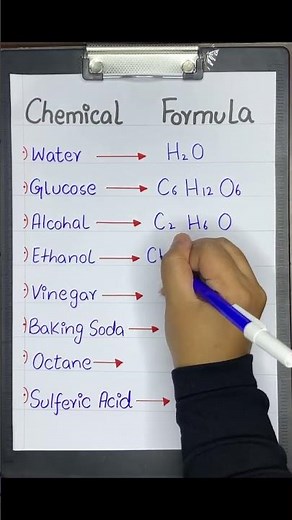 Chemical Formula
Water → H₂O
Glucose → C₆ H₁₂ O₆
Alcohal → C₂ H₆ O
Ethanol →
Vinegar →
Baking Soda →
Octane →
Sulferic Acid →